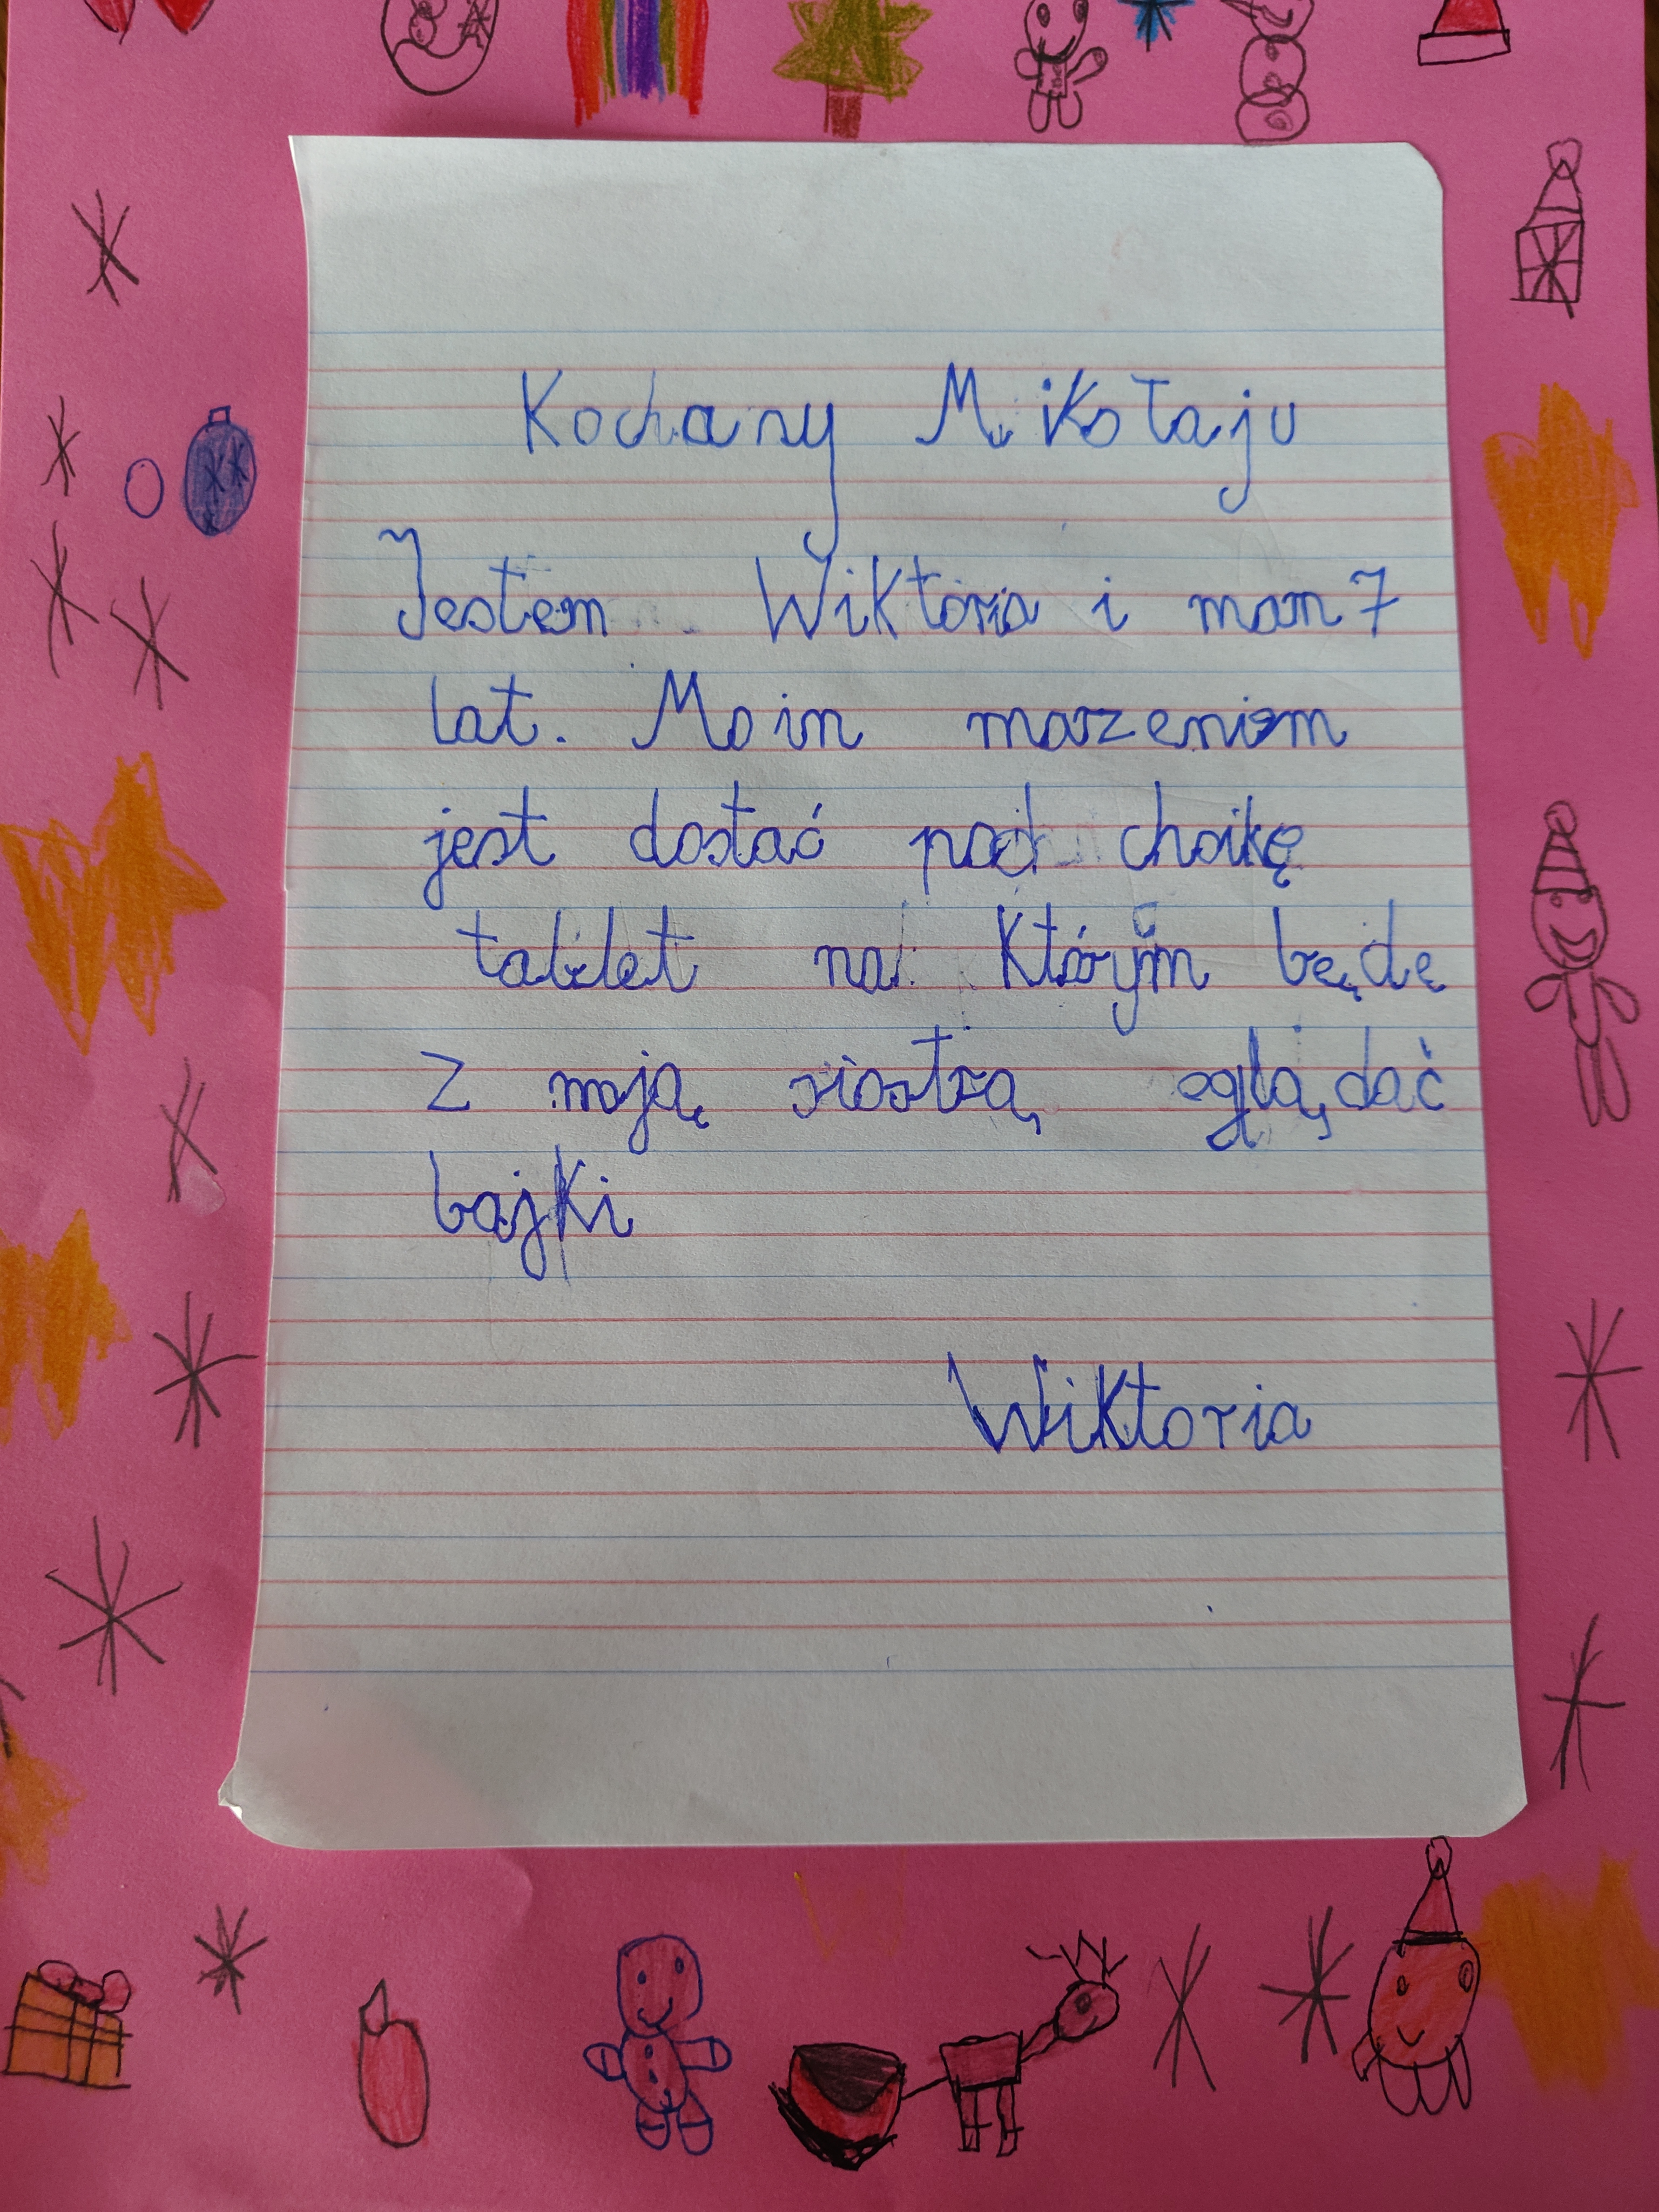 Kochany Mikołaju
Jestem Wiktoria i mam 7
lat. Moin marzeniem
jest dostać pod choikę
tablet na którym będę
z moją siostrą oglądać
bajki
Wiktoria